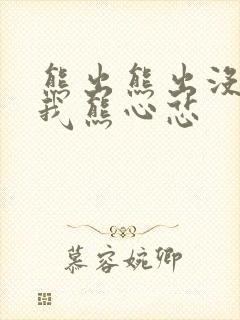 熊出熊出没
我熊心悲
慕容婉卿